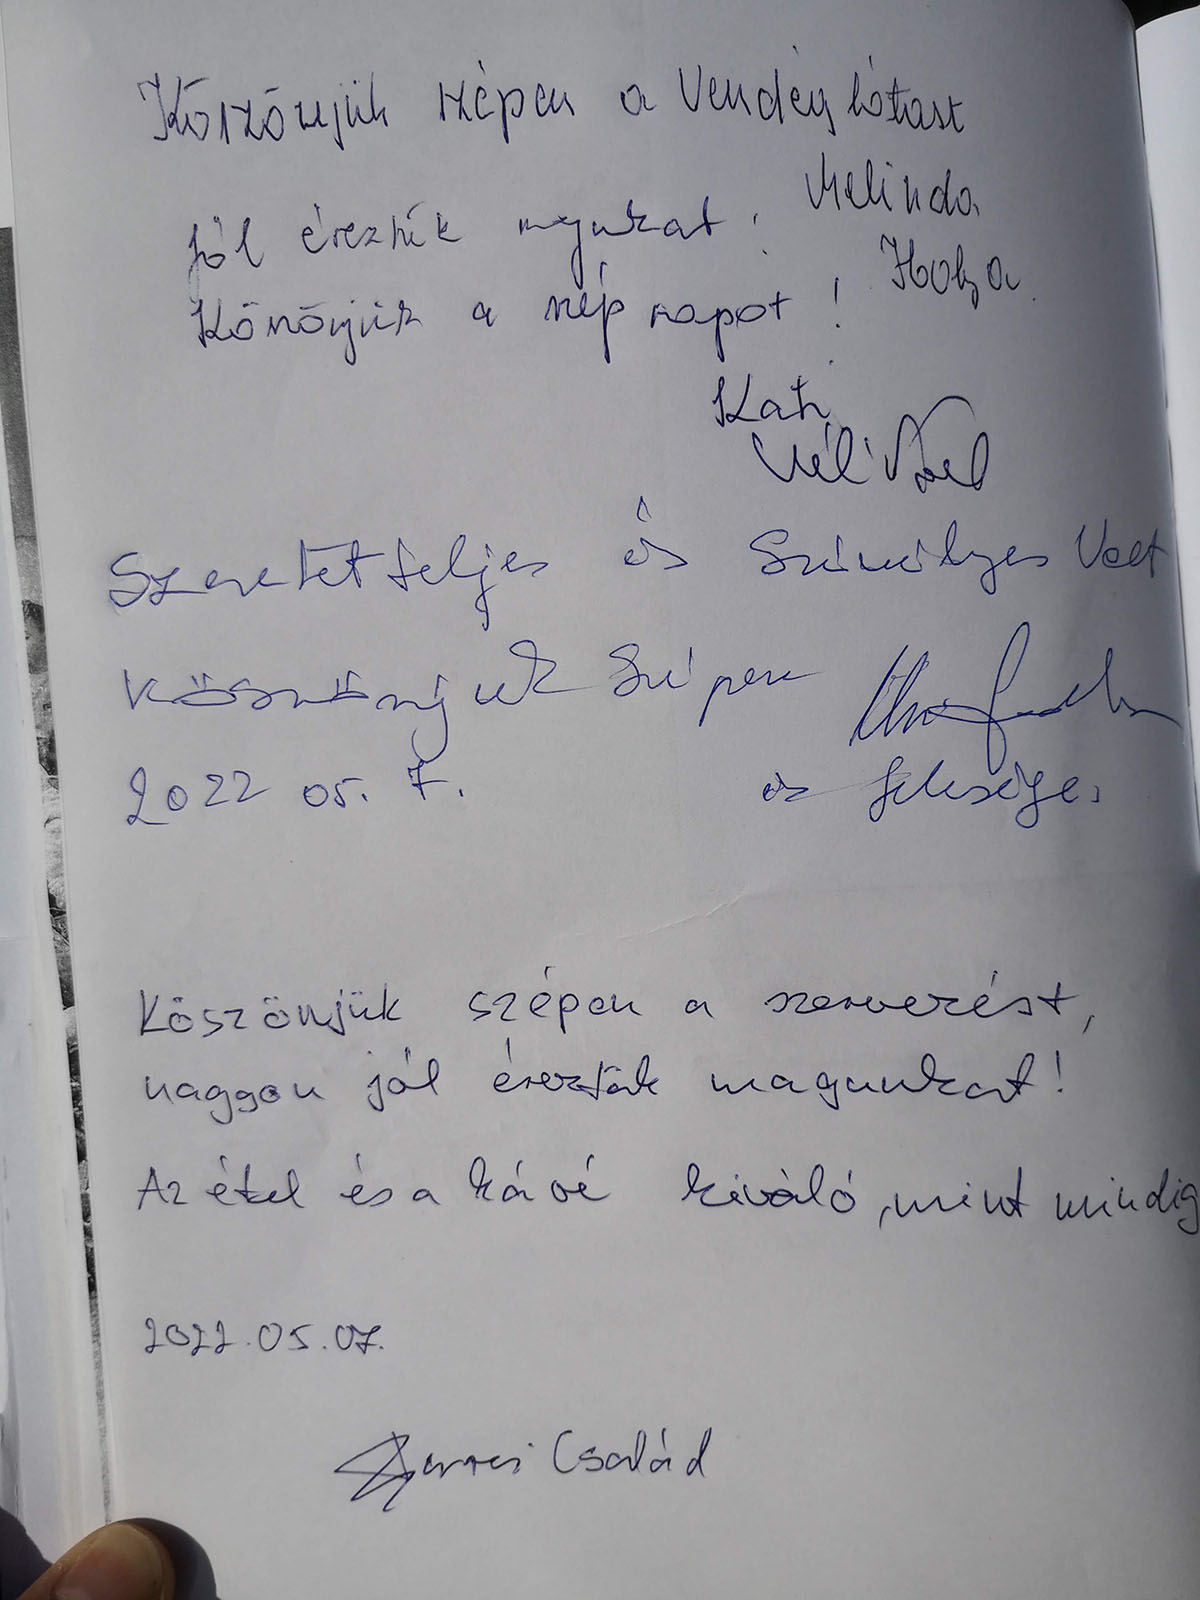 Köszönjük szépen a Vendéglátást
Melinda
jól éreztük magunkat!
Köszönjük a szép napot!
Kati
Szeretetteljes és Személyes Volt
Köszönjük Szépen
2022 05. 7.
és felesége.
Köszönjük szépen a szervezést,
naggon jól éreztük magunkat!
Az étel és a kávé kiváló, mint mindig
2022.05.07.
Család